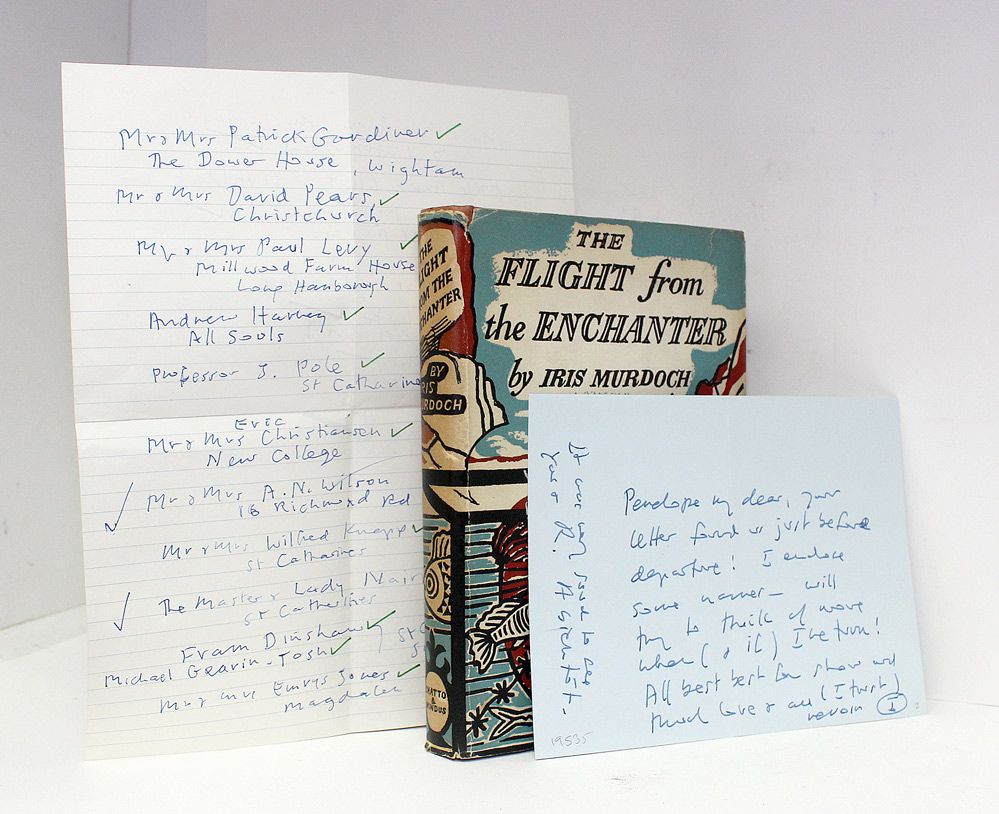 Mr & Mrs Patrick Gardiner
The Dower House, Wightam
Mr & Mrs David Pears,
Christchurch
Mr & Mrs Paul Levy
Millwood Farm House
Long Hanborough
Andrew Harvey
All Souls
Professor J. Pole
St Catharine
Eric
Mr & Mrs Christiansen
New College
Mr & Mrs A.N. Wilson
16 Richmond Rd
Mr & Mrs Wilfred Knapp
St Catharines
The Master & Lady Nair
St Catherines
Fram Dinshaw
Michael Gearin-Tosh
Mr & Mrs Emrys Jones
Magdalen
THE
FLIGHT
FROM THE
ENCHANTER
BY
IRIS
MURDOCH
CHATTO &
WINDUS
THE
FLIGHT from
the ENCHANTER
by IRIS MURDOCH
Penelope my dear, your
letter found us just before
departure! I enclose
some names – will
try to think of more
when (& if) I return!
All best best for show and
much love & au (I trust)
revoir I
19535